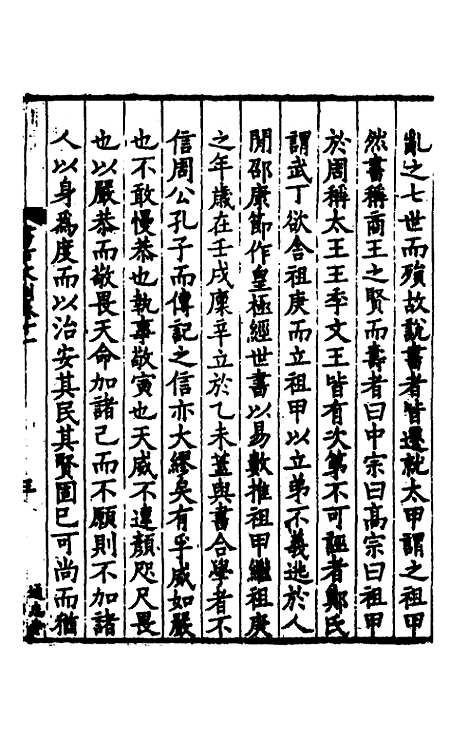 亂之七世而殞故說書者皆遷就太甲謂之祖甲
然書稱商王之賢而壽者曰中宗曰高宗曰祖甲
於周稱太王王季文王皆有次第不可誣者鄭氏
謂武丁欲舍祖庚而立祖甲以立弟不義逃於人
閒邵康節作皇極經世書以易數推祖甲繼祖庚
之年歲在壬戌廩辛立於乙未蓋與書合學者不
信周公孔子而傳記之信亦大繆矣有孚威如嚴
也不敢慢恭也執事敬寅也天威不違顏咫尺畏
也以嚴恭而敬畏天命加諸己而不願則不加諸
人以身爲度而以治安其民其賢固已可尚而猶